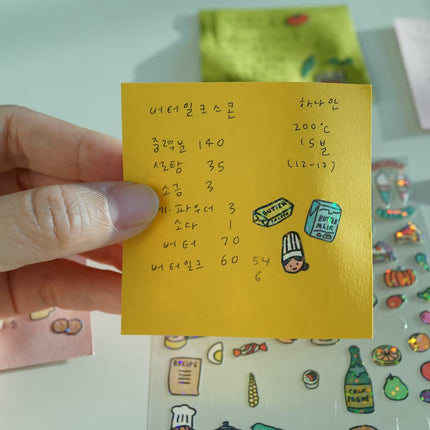 버터밀크스콘
하나인
200℃
15분
(12-17)
중력분 140
설탕 35
소금 3
파우더 3
소다 1
버터 70
버터밀크 60
54
6
BUTTER
BUTTER
MILK
RECIPE
CHAM
PAGNE